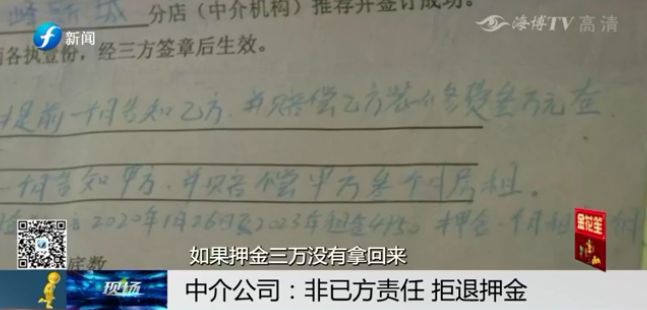 新闻
海博TV 高清
分店（中介机构）推荐并签订成功。
各执壹份，经三方签章后生效。
提前一个月告知乙方，并赔偿乙方装修费叁万元
一个月告知甲方，并赔偿甲方叁个月房租。
2020年1月26日至2023年租金4150 押金
底数
如果押金三万没有拿回来
现场
中介公司：非已方责任 拒退押金